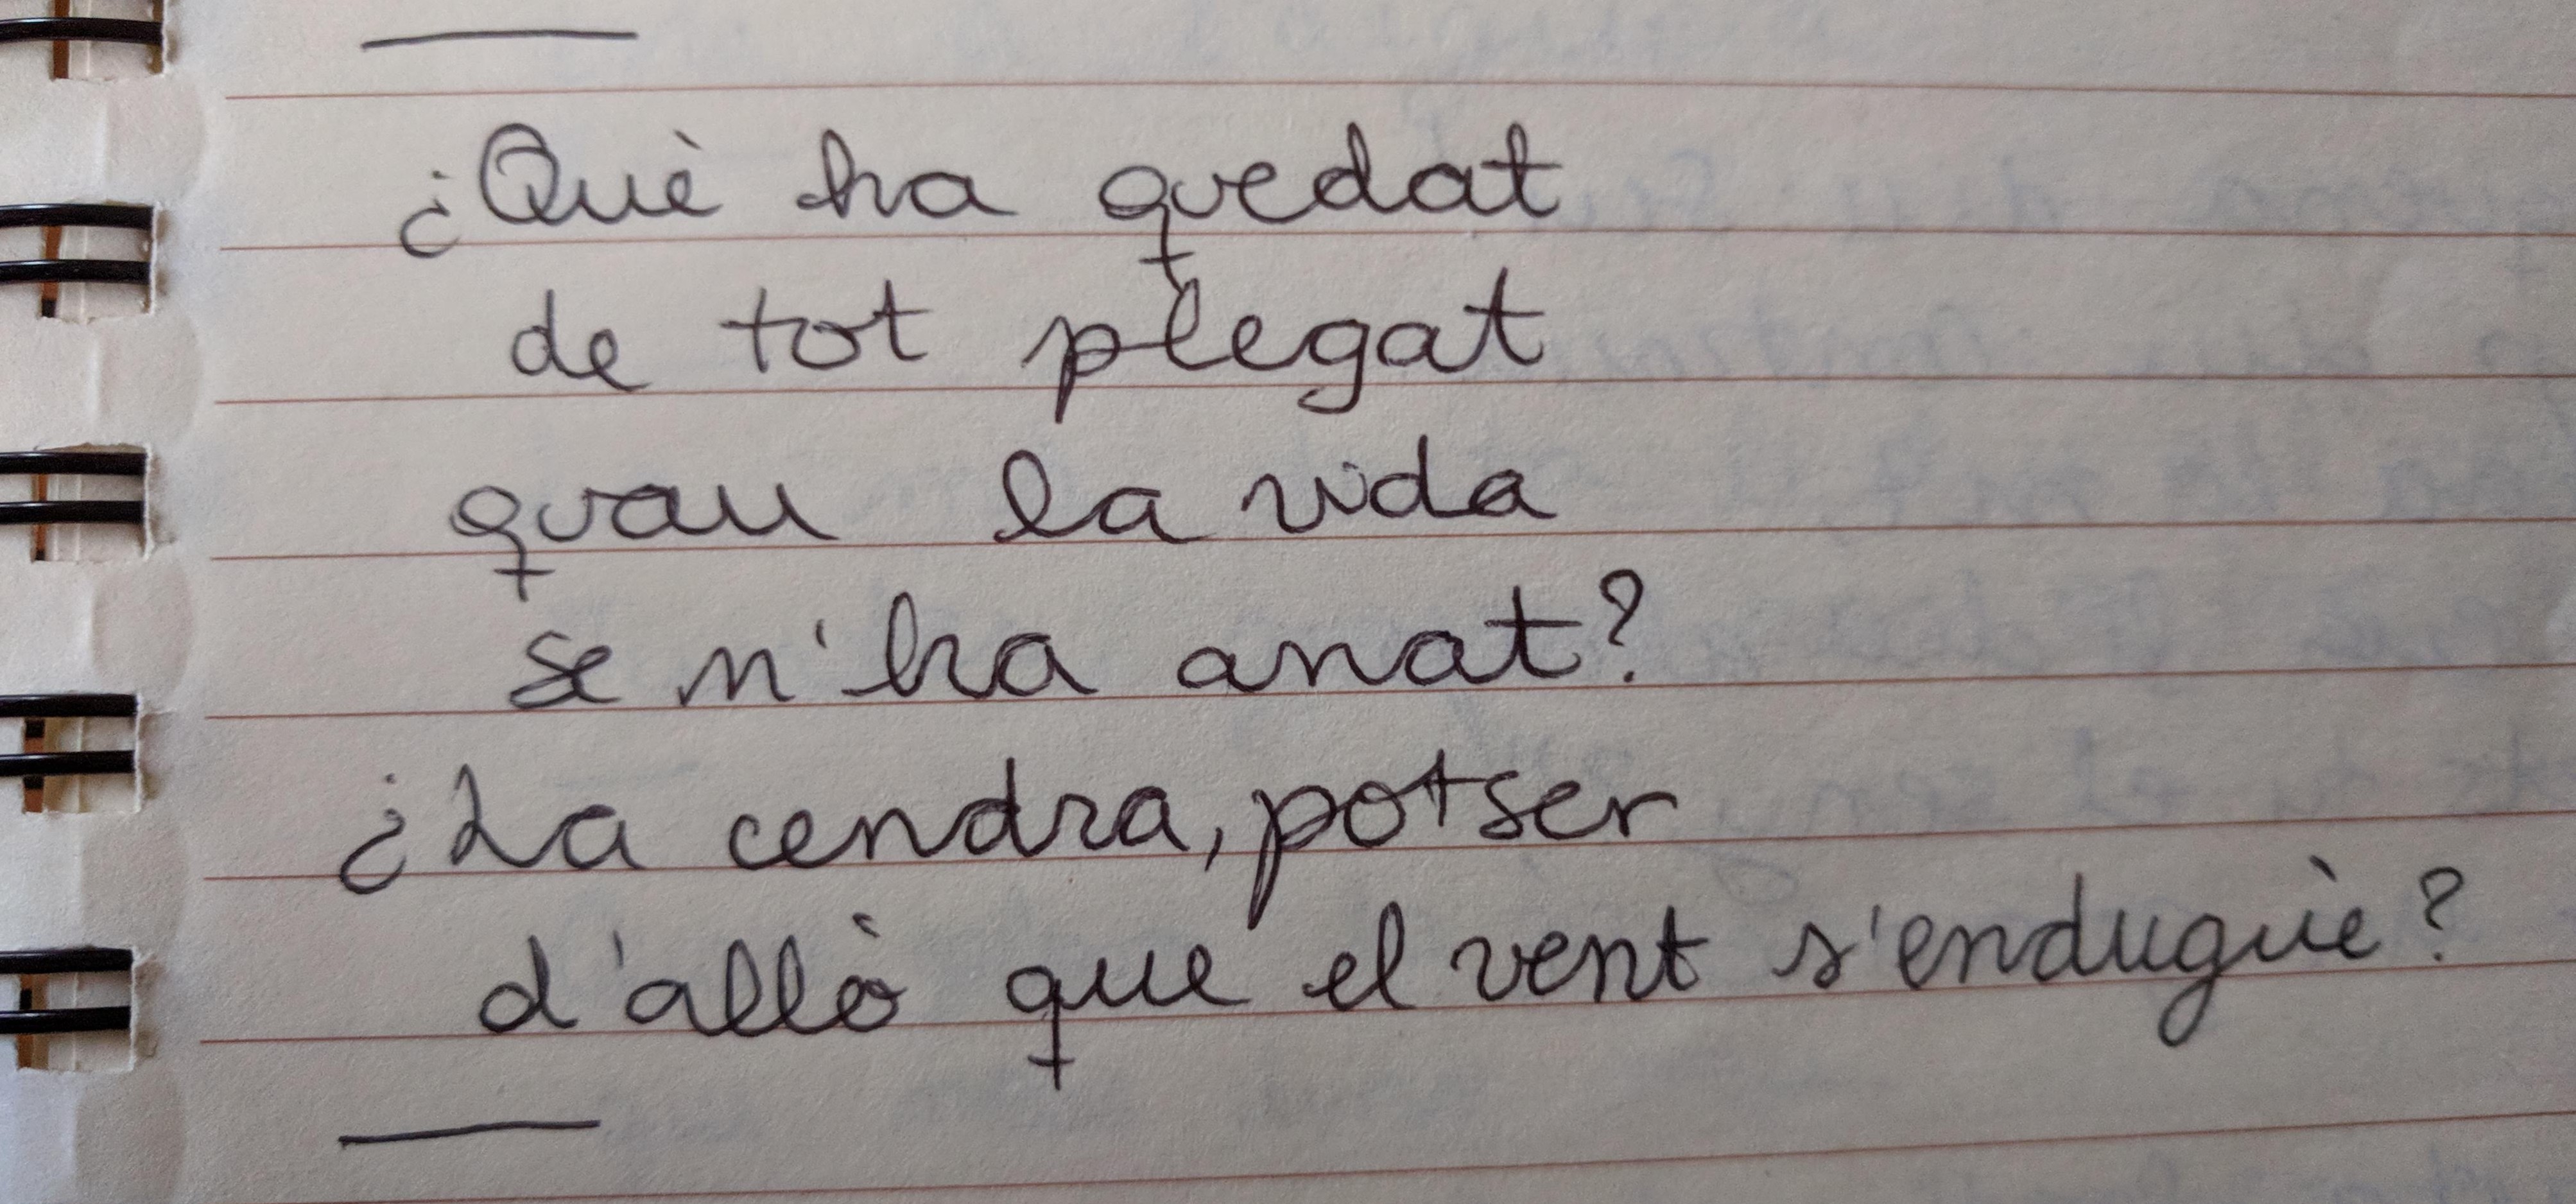 ¿Què ha quedat
de tot plegat
quan la vida
se n'ha anat?
¿La cendra, potser
d'allò que el vent s'endugué?